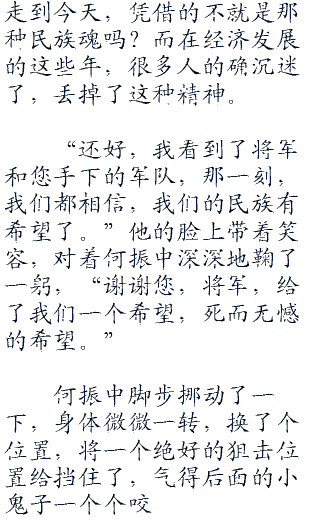 走到今天，凭借的不就是那
种民族魂吗？而在经济发展
的这些年，很多人的确沉迷
了，丢掉了这种精神。
“还好，我看到了将军
和您手下的军队，那一刻，
我们都相信，我们的民族有
希望了。”他的脸上带着笑
容，对着何振中深深地鞠了
一躬，“谢谢您，将军，给
了我们一个希望，死而无憾
的希望。”
何振中脚步挪动了一
下，身体微微一转，换了个
位置，将一个绝好的狙击位
置给挡住了，气得后面的小
鬼子一个个咬